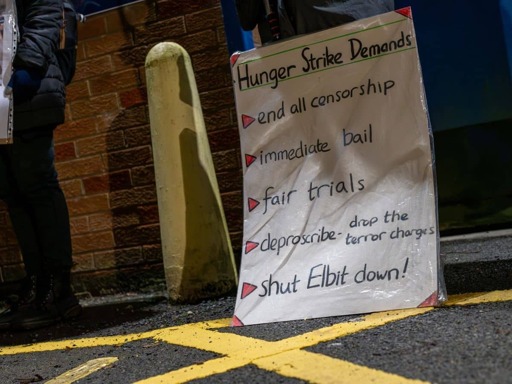 Hunger Strike Demands
end all censorship
immediate bail
fair trials
deproscribe - drop the
terror charges
shut Elbit down!